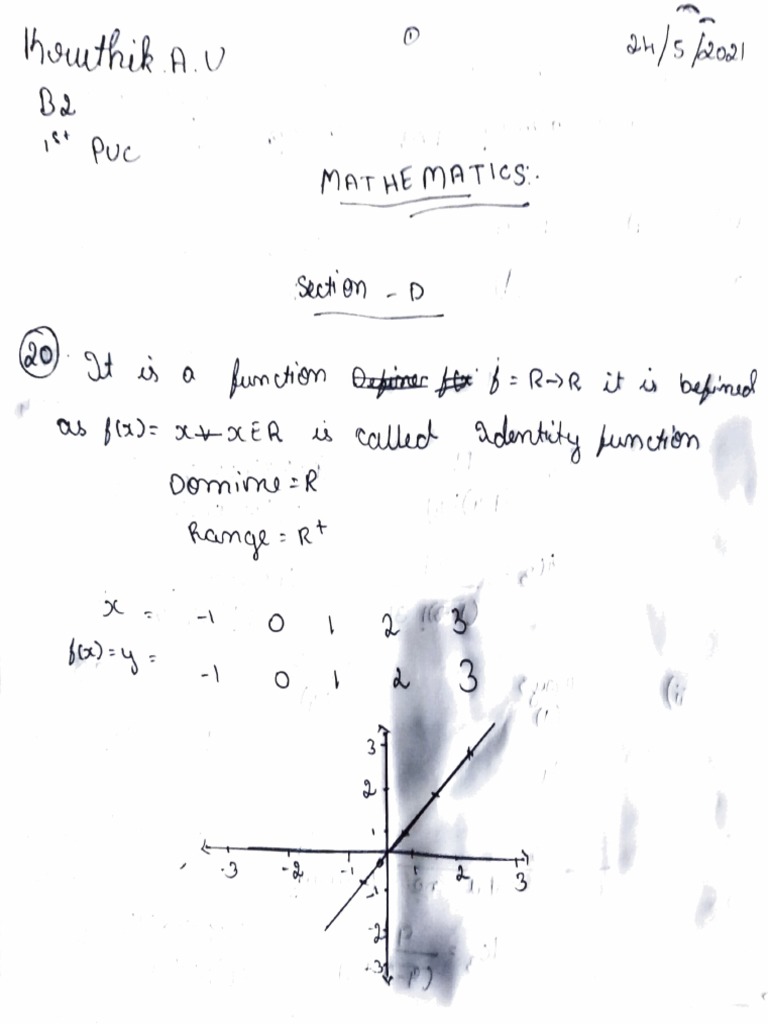 ①
24/5/2021
A.V
B2
1st PUC
MATHEMATICS:.
Section - D
20. It is a function f = R→R it is defined
as f(x) = x ∀ x ∈ R is called Identity function
Domine = R
Range = R+
x = -1 0 1 2 3
f(x) = y = -1 0 1 2 3
3
2
1
-3 -2 -1 0 1 2 3
-1
-2
-3